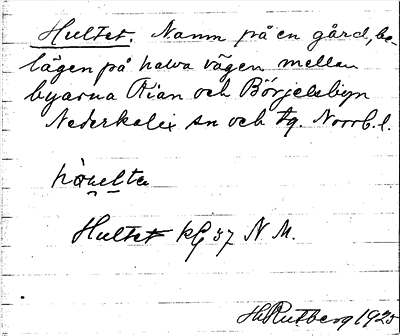 Hultet. Namn på en gård, be-
lägen på halva vägen mellan
byarna Rian och Börjelsbyn
Nederkalix sn och tg. Norrb. l.
Hultet kbl 37 N M.
H. Rutberg 1925